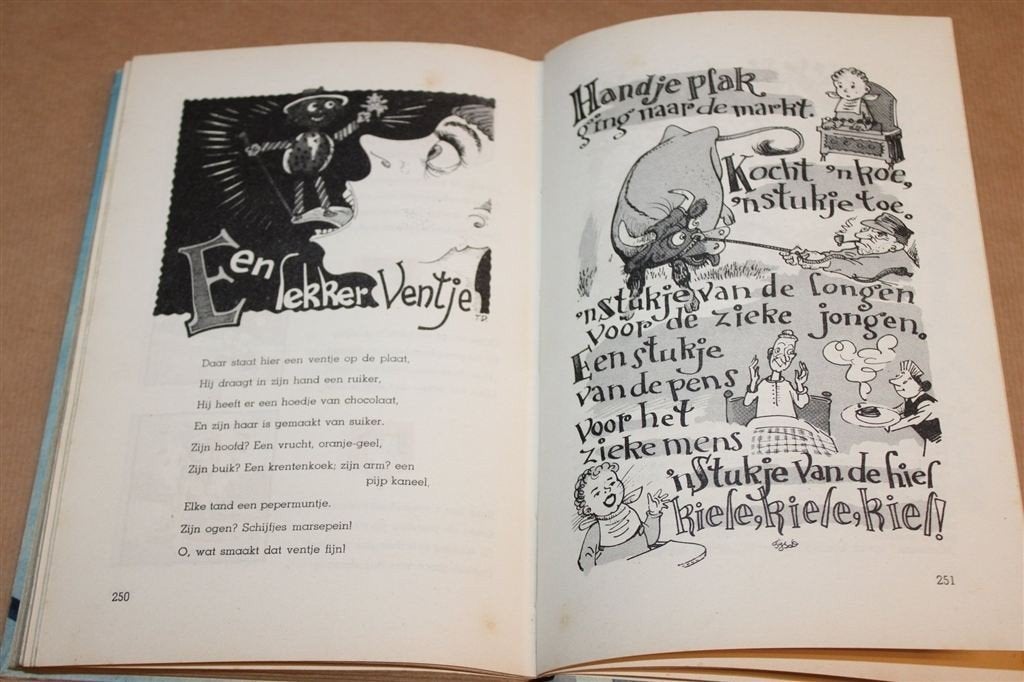 Een lekker Ventje
T.D.
Daar staat hier een ventje op de plaat,
Hij draagt in zijn hand een ruiker,
Hij heeft er een hoedje van chocolaat,
En zijn haar is gemaakt van suiker.
Zijn hoofd? Een vrucht, oranje-geel,
Zijn buik? Een krentenkoek; zijn arm? een
pijp kaneel,
Elke tand een pepermuntje.
Zijn ogen? Schijfjes marsepein!
O, wat smaakt dat ventje fijn!
250
Handje plak
ging naar de markt.
Kocht 'n koe,
'n stukje toe.
'n Stukje van de longen
voor de zieke jongen.
Een stukje
van de pens
voor het
zieke mens
'n Stukje van de hiel
kiele, kiele, kiel!
251